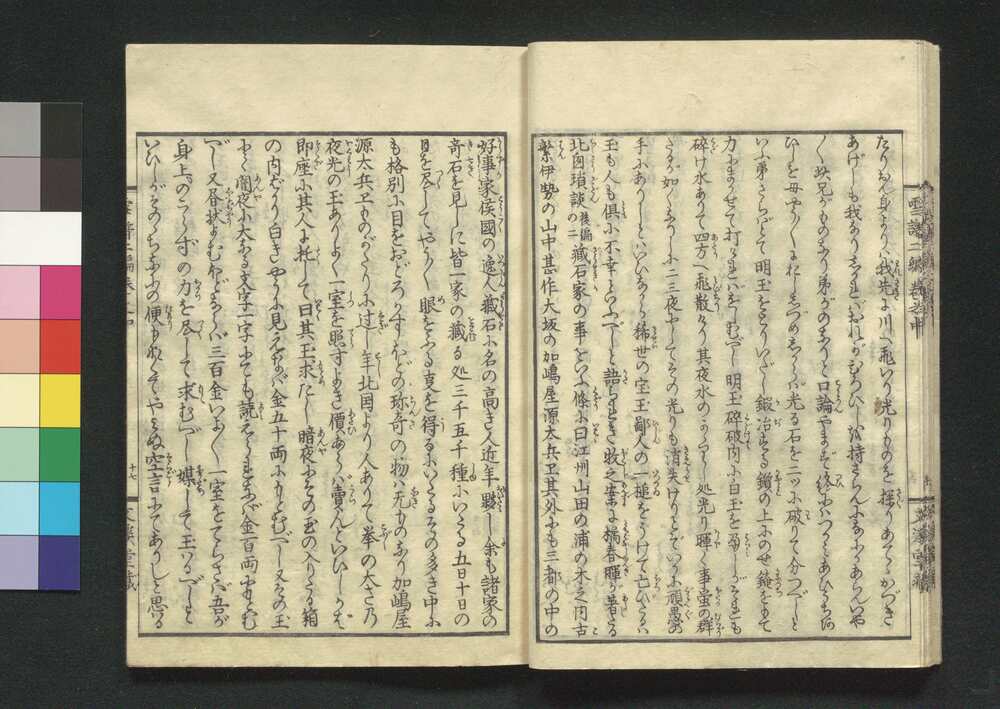 雪譜二編巻之中
たりけん身より八我先に川へ飛いり光りものを探りあてゝかづき
あげしも我なりしかバおれがひろひし也持さらん
兄がものなり弟がのなりと口論やまず終にハつかみあひうちあ
ひしを母やう〳〵におししづめしからバ光る石を二ツに破りて分つべしと
いふ弟さらばとて明玉をとりいだし鍛冶する鑕の上にのせ鎚をもて
力にまかせて打けれバをしむべし明玉砕破内に白玉を孕しがそれも
砕け水ありて四方へ飛散けり其夜水のかゝりし処光り暉く事蛍の群
たるが如くなりしに二三夜にしてその光りも消失けりとぞいかに頑愚の
手にありしといひながら稀世の宝玉鄙人の一槌をうけて亡びたるハ
玉も人も倶に不幸といふべしと語られき牧之案に橘春暉が著たる
北囱瑣談後編の二蔵石家の事をいふ條に曰江州山田の浦の木之内古
繁伊勢の山中甚作大坂の加嶋屋源太兵ヱ其外にも三都の中の
好事家侯國の逸人蔵石に名の高き人近年夥し余も諸家の
奇石を見しに皆一家の蔵る処三千五千種にいたる五日十日の
目を尽してやう〳〵眼をふる事を得るにいたるその多き中に
も格別に目をおどろかすほどの珎奇の物ハ无ものなり加嶋屋
源太兵ヱものがたりに過し年北国より人ありて拳の大さ乃
夜光の玉ありよく一室を照すよき價あらハ賣んといひしかば
即座に其人に托して曰其玉求たし暗夜にその玉の入りたる箱
の内ばかり白きやうに見えなバ金五十両にもとむべし又その玉
にて闇夜に大なる文字一字にても読えられなバ金百両にもとむ
べし又書状よむほどならバ三百金いよ〳〵一室をてらさバ吾が
身上のこらずの力を尽して求むべし媒して玉はるべしと
いひしがそのゝちなにの便もなくてやミぬ空言にてありしと思る
十七
文溪堂蔵